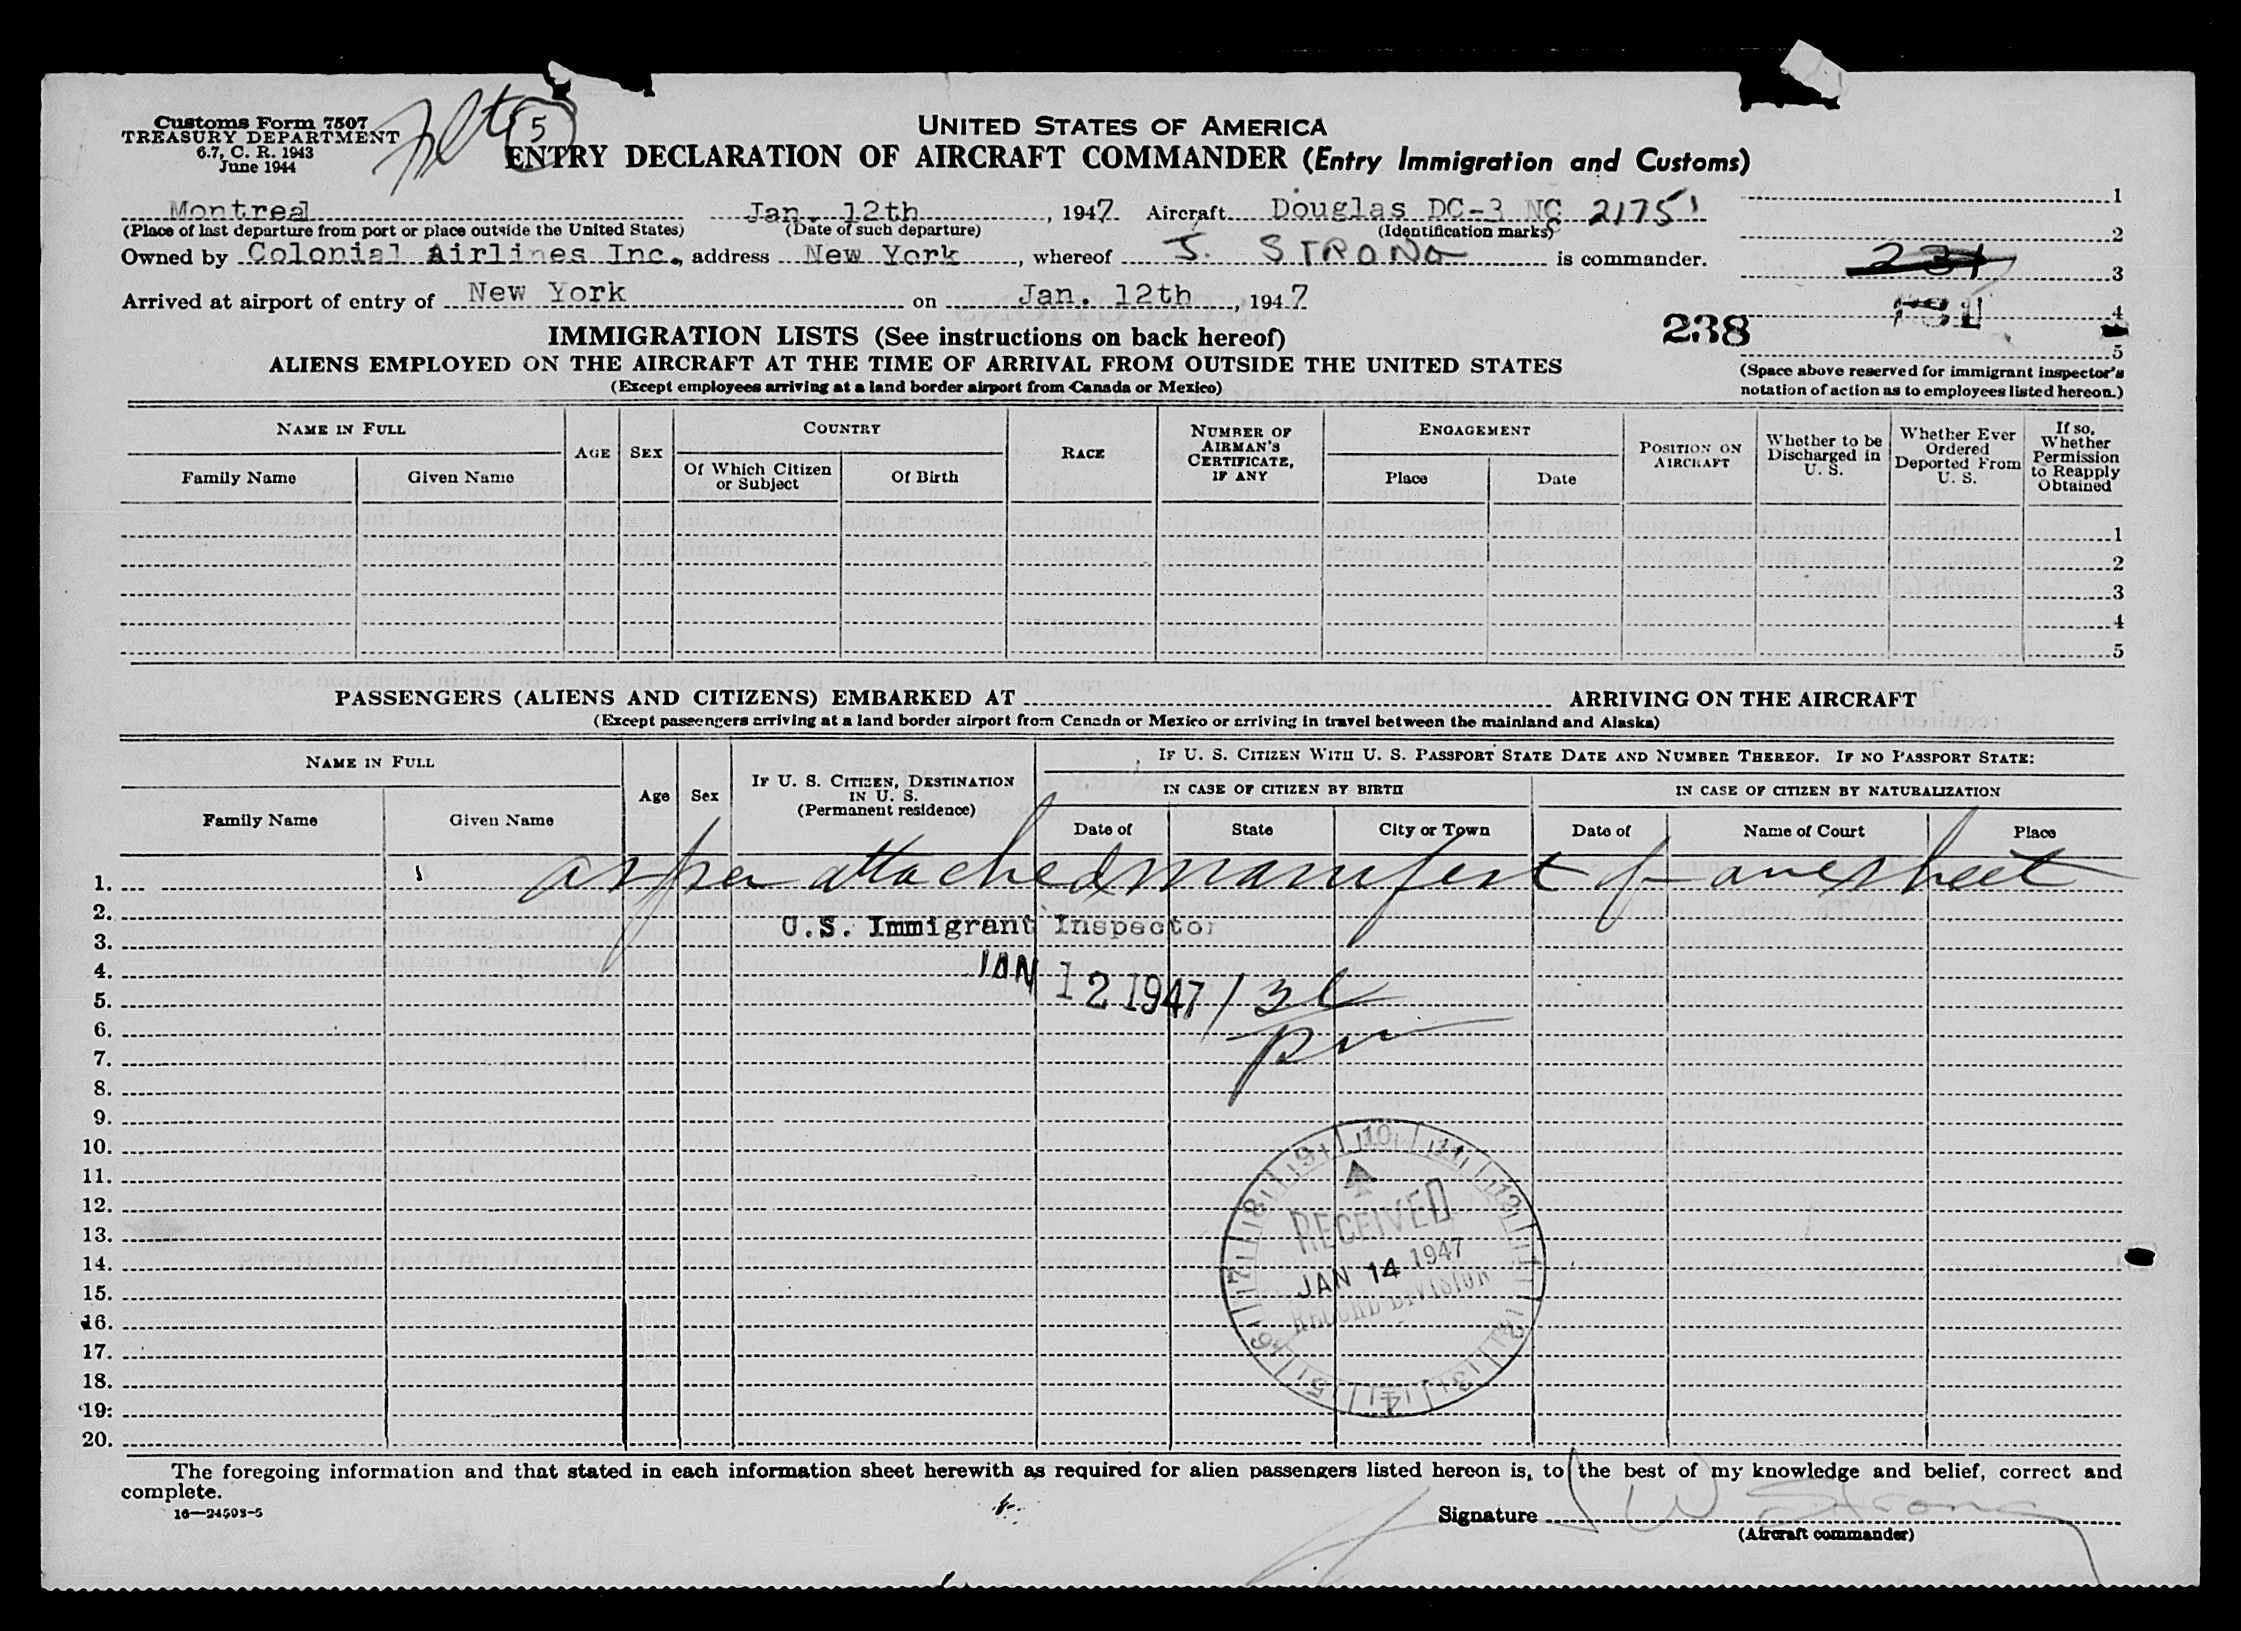 Customs Form 7507
TREASURY DEPARTMENT
6.7, C. R. 1943
June 1944
5
UNITED STATES OF AMERICA
ENTRY DECLARATION OF AIRCRAFT COMMANDER (Entry Immigration and Customs)
Montreal Jan. 12th, 1947 Aircraft Douglas DC-3 NC 21751
(Place of last departure from port or place outside the United States) (Date of such departure) (Identification marks)
Owned by Colonial Airlines Inc., address New York, whereof J. STRONG is commander.
Arrived at airport of entry of New York on Jan. 12th, 1947
1
2
231 3
4
5
238
(Space above reserved for immigrant inspector's
notation of action as to employees listed hereon.)
IMMIGRATION LISTS (See instructions on back hereof)
ALIENS EMPLOYED ON THE AIRCRAFT AT THE TIME OF ARRIVAL FROM OUTSIDE THE UNITED STATES
(Except employees arriving at a land border airport from Canada or Mexico)
NAME IN FULL
Family Name Given Name
AGE
SEX
COUNTRY
Of Which Citizen or Subject Of Birth
RACE
NUMBER OF AIRMAN'S CERTIFICATE, IF ANY
ENGAGEMENT
Place Date
POSITION ON AIRCRAFT
Whether to be Discharged in U. S.
Whether Ever Ordered Deported From U. S.
If so, Whether Permission to Reapply Obtained
1
2
3
4
5
PASSENGERS (ALIENS AND CITIZENS) EMBARKED AT ARRIVING ON THE AIRCRAFT
(Except passengers arriving at a land border airport from Canada or Mexico or arriving in travel between the mainland and Alaska)
NAME IN FULL
Family Name Given Name
Age
Sex
IF U. S. CITIZEN, DESTINATION IN U. S.
(Permanent residence)
IF U. S. CITIZEN WITH U. S. PASSPORT STATE DATE AND NUMBER THEREOF. IF NO PASSPORT STATE:
IN CASE OF CITIZEN BY BIRTH IN CASE OF CITIZEN BY NATURALIZATION
Date of State City or Town Date of Name of Court Place
1. as per attached manifest of one sheet
2.
U.S. Immigrant Inspector
3.
4.
JAN 12 1947
5.
6.
pm
7.
8.
9.
10.
11.
12.
13.
14.
15.
16.
17.
18.
19.
20.
9 10 11 12 1 2 3 4 5 6 7 8
RECEIVED
JAN 14 1947
RECORD DIVISION
The foregoing information and that stated in each information sheet herewith as required for alien passengers listed hereon is, to the best of my knowledge and belief, correct and
complete.
16—24503-5
Signature J W Strong
(Aircraft commander)